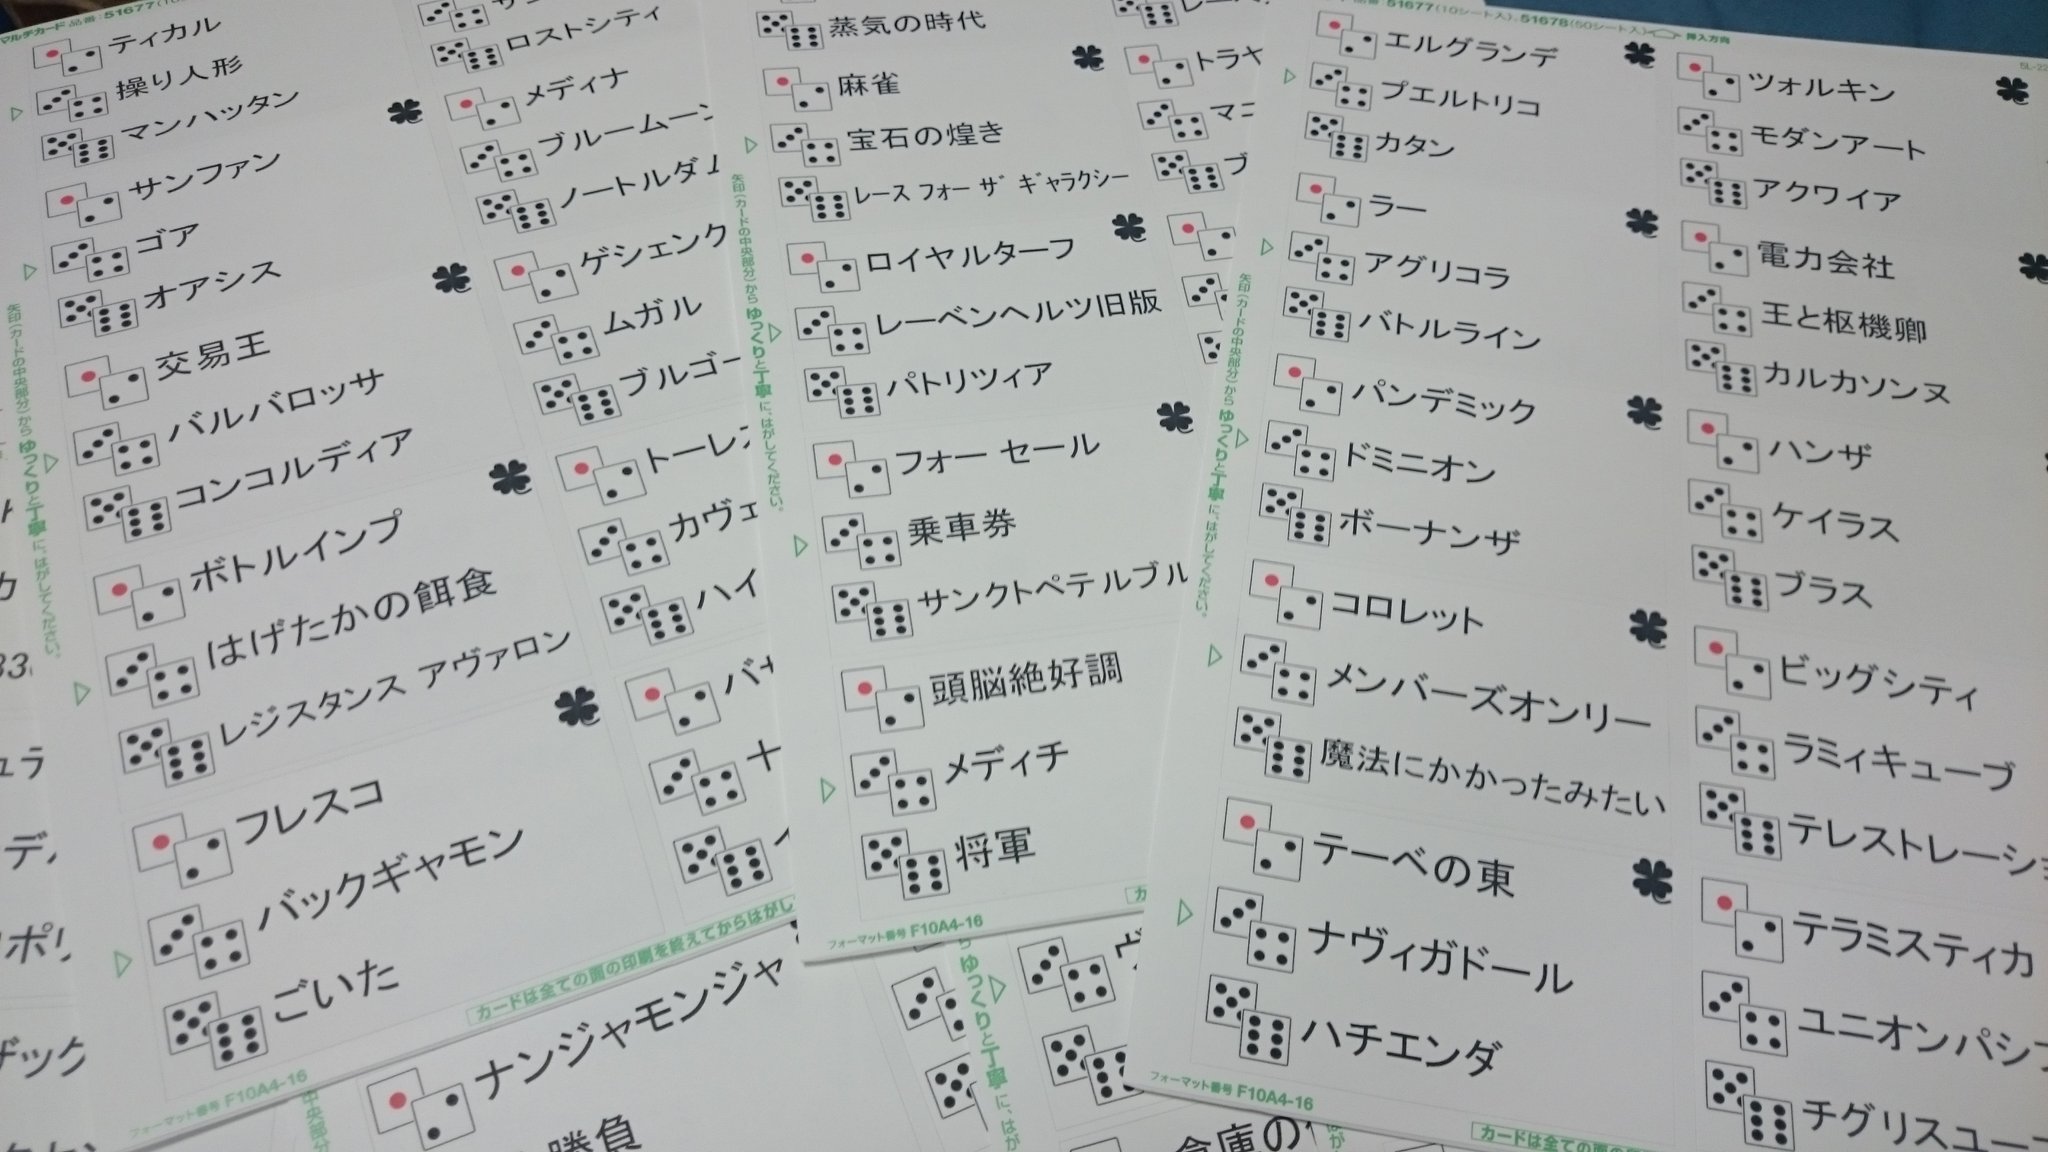 マルチカード 品番:51677
ティカル
操り人形
マンハッタン
サンファン
ゴア
オアシス
交易王
バルバロッサ
コンコルディア
ボトルインプ
はげたかの餌食
レジスタンス アヴァロン
フレスコ
バックギャモン
ごいた
フォーマット番号 F10A4-16
カードは全ての面の印刷を終えてからはがし
矢印(カードの中央部分)からゆっくりと丁寧に、はがしてください。
ロストシティ
メディナ
ブルームーン
ノートルダム
ゲシェンク
ムガル
ブルゴー
トーレス
カヴェ
ハイ
バサ
ナ
矢印(カードの中央部分)からゆっくりと丁寧に、はがしてください。
蒸気の時代
麻雀
宝石の煌き
レース フォー ザ ギャラクシー
ロイヤルターフ
レーベンヘルツ旧版
パトリツィア
フォー セール
乗車券
サンクトペテルブル
頭脳絶好調
メディチ
将軍
フォーマット番号 F10A4-16
トラヤ
マニ
ブ
矢印(カードの中央部分)からゆっくりと丁寧に、はがしてください。
品番:51677(10シート入)、51678(50シート入) 挿入方向
エルグランデ
プエルトリコ
カタン
ラー
アグリコラ
バトルライン
パンデミック
ドミニオン
ボーナンザ
コロレット
メンバーズオンリー
魔法にかかったみたい
テーベの東
ナヴィガドール
ハチエンダ
フォーマット番号 F10A4-16
カードは全ての面の印
ツォルキン
モダンアート
アクワイア
電力会社
王と枢機卿
カルカソンヌ
ハンザ
ケイラス
ブラス
ビッグシティ
ラミィキューブ
テレストレーショ
テラミスティカ
ユニオンパシフ
チグリスユー
ナンジャモンジャ
勝負
倉庫の